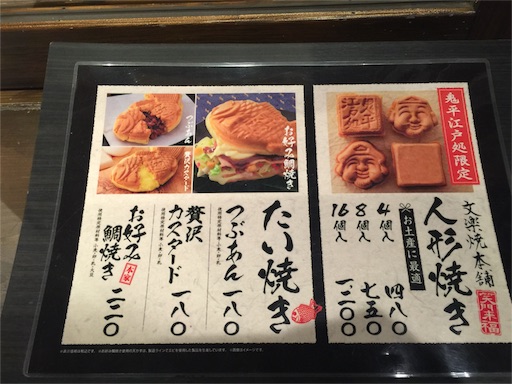 鬼平江戸処限定
文楽焼本舗
人形焼き
笑門来福
お土産に最適
4個入 四八〇
8個入 七五〇
16個入 一二〇〇
お好み鯛焼き
つぶあん
贅沢カスタード
たい焼き
つぶあん 一八〇
贅沢
カスタード 一八〇
お好み
鯛焼き 二二〇